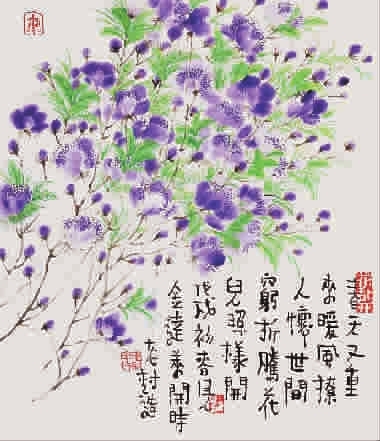 春天又重
来暖風撩
人懷世間
窮折騰花
兒照樣開
戊戌初春
金達萊開時
老村造